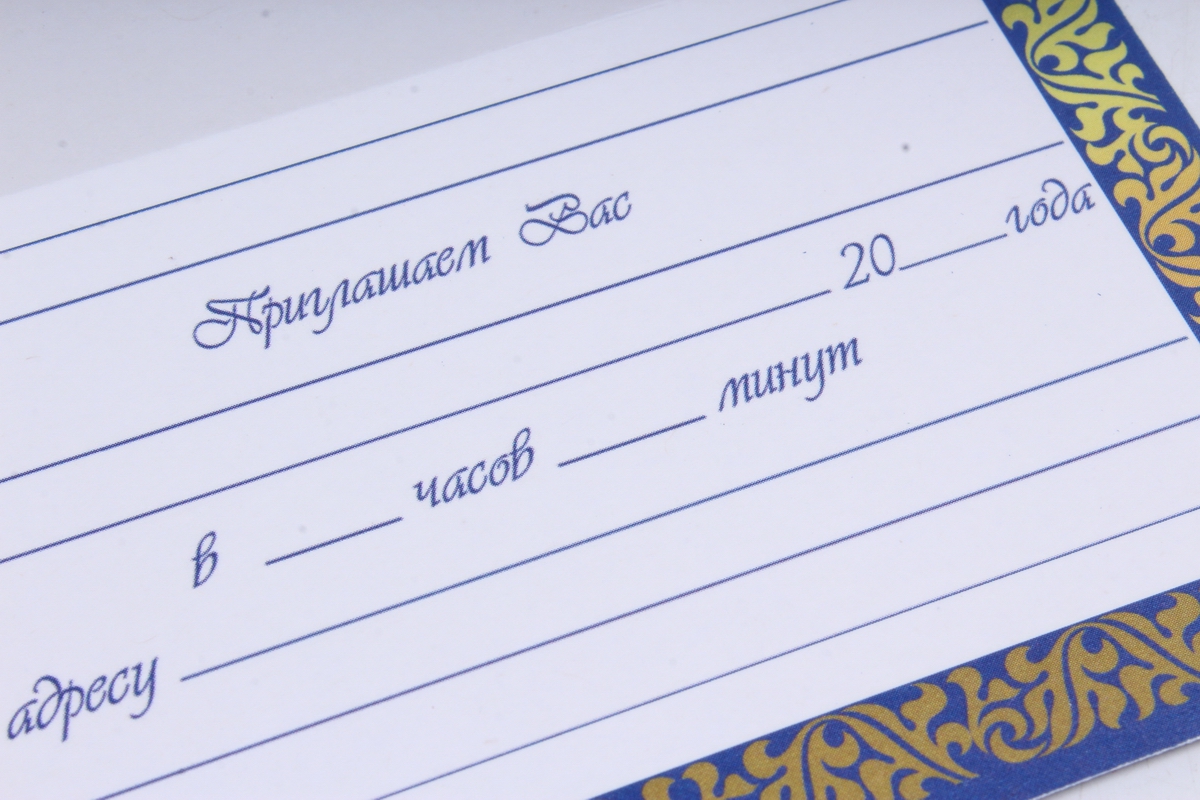 Приглашаем Вас
20____года
в ____ часов ____ минут
адресу